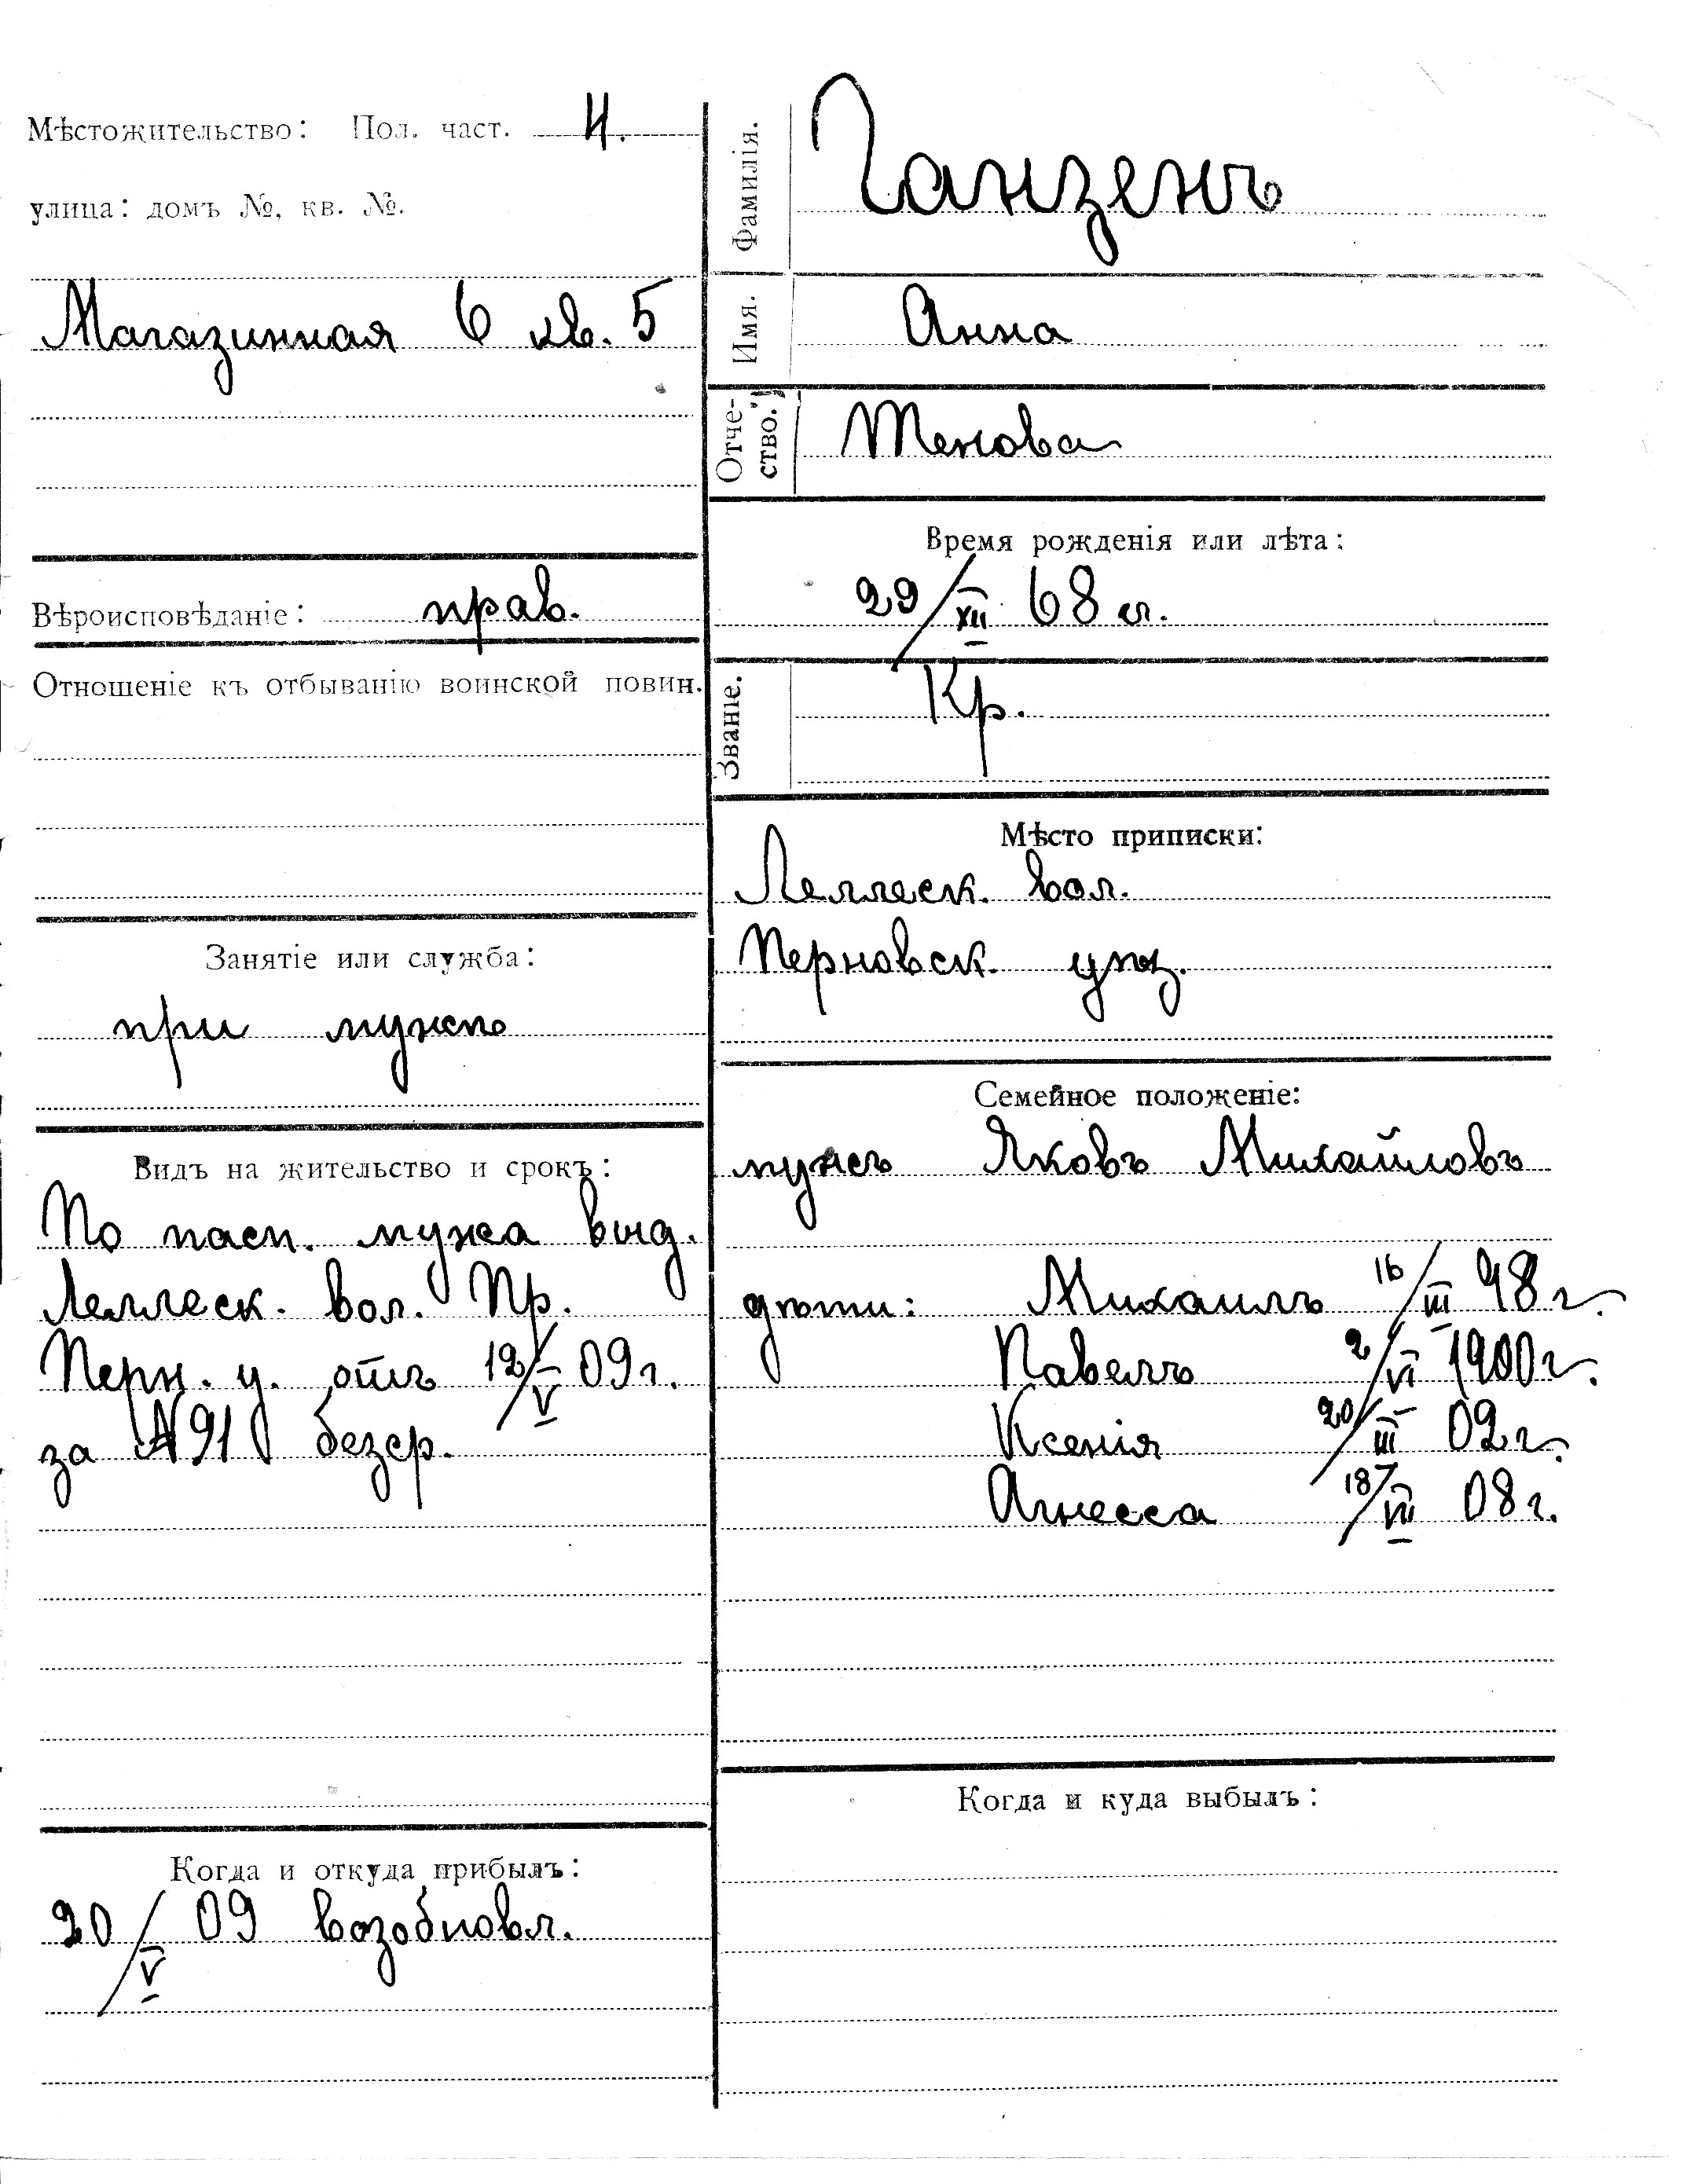 Мѣстожительство: Пол. част. II.
улица: домъ №, кв. №.
Магазинная 6 кв. 5
Вѣроисповѣданіе: прав.
Отношеніе къ отбыванію воинской повин.
Занятіе или служба:
при мужѣ
Видъ на жительство и срокъ:
По пасп. мужа выд.
Леллеск. вол. Пр.
Перн. у. отъ 12/V 09 г.
за № 91 безср.
Когда и откуда прибылъ:
20/V 09 возобновл.
Фамилія. Ганзенъ
Имя. Анна
Отче-
ство. Тенова
Время рожденія или лѣта:
29/XII 68 г.
Званіе. Кр.
Мѣсто приписки:
Леллеск. вол.
Перновск. уѣз.
Семейное положеніе:
мужъ Яковъ Михайловъ
дѣти: Михаилъ 16/III 98 г.
Павелъ 2/VI 1900 г.
Ксенія 20/III 02 г.
Агнесса 18/VII 08 г.
Когда и куда выбылъ: